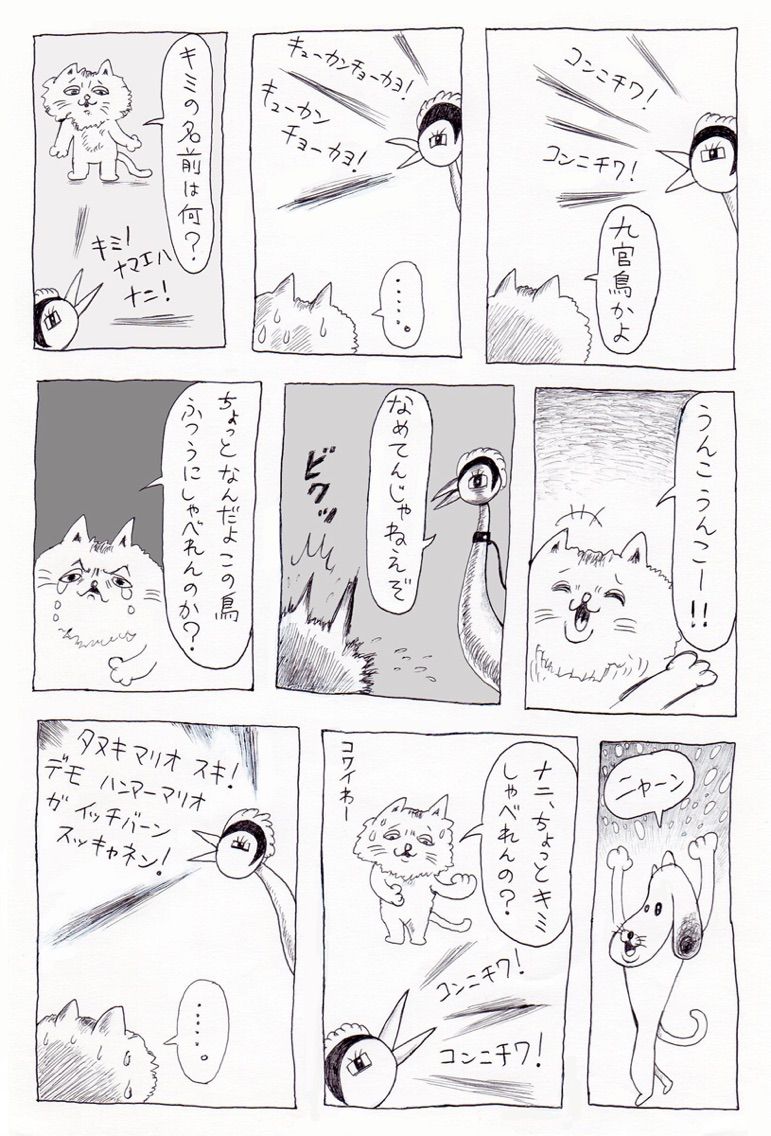 コンニチワ!
コンニチワ!
九官鳥かよ
キューカンチョーカヨ!
キューカン
チョーカヨ!
・・・・・。
キミの名前は何?
キミ!
ナマエハ
ナニ!
うんこうんこー!!
なめてんじゃねえぞ
ビクッ
ちょっとなんだよこの鳥
ふつうにしゃべれんのか?
ニャーン
ナニ、ちょっとキミ
しゃべれんの?
コワイわー
コンニチワ!
コンニチワ!
タヌキマリオ スキ!
デモ ハンマーマリオ
ガ イッチバーン
スッキャネン!
・・・・・。